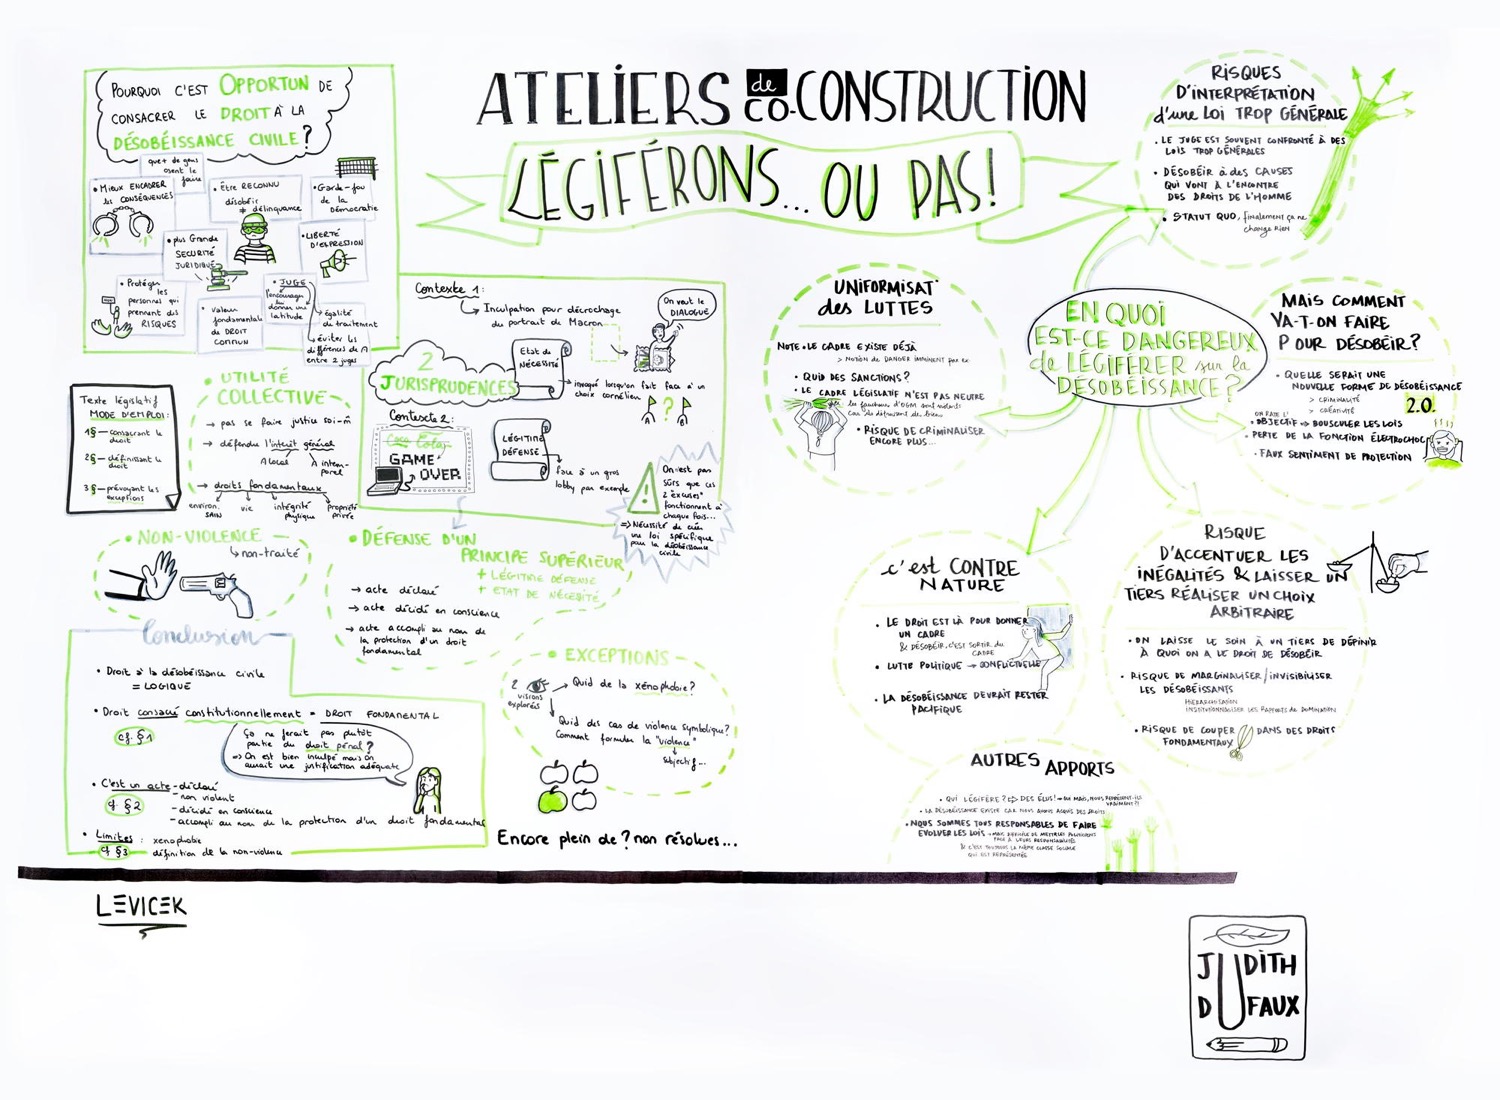 ATELIERS de CO-CONSTRUCTION
LÉGIFÉRONS... OU PAS!
POURQUOI C'EST OPPORTUN DE
CONSACRER LE DROIT À LA
DÉSOBÉISSANCE CIVILE?
que + de gens
osent le
faire
• Mieux ENCADRER
les CONSÉQUENCES
• Être RECONNU
désobéir
≠ délinquance
• Garde-fou
de la
Démocratie
• plus Grande
SÉCURITÉ
JURIDIQUE
• LIBERTÉ
D'EXPRESSION
• Protéger
les
personnes qui
prennent des
RISQUES
• Valeur
fondamentale
du DROIT
COMMUN
• JUGE
l'encourager
donner une
latitude
→ égalité
de traitement
→ éviter les
différences de
entre 2 juges
Texte législatif
MODE D'EMPLOI:
1§ — consacrant le
droit
2§ — définissant le
droit
3§ — prévoyant les
exceptions
• UTILITÉ
COLLECTIVE
→ pas se faire justice soi-m̂
→ défendre l'intérêt général
À local
À intem-
porel
→ droits fondamentaux
environ.
SAIN
vie
intégrité
physique
propriété
privée
Contexte 1:
→ Inculpation pour décrochage
du portrait de Macron
On veut le
DIALOGUE
2
JURISPRUDENCES
Etat de
NÉCESSITÉ
→ invoqué lorsqu'on fait face à un
choix cornélien
A ? B
Contexte 2:
Coca Cola
GAME
OVER
LÉGITIME
DÉFENSE
→ face à un gros
lobby par exemple
On est pas
sûrs que ces
2 "excuses"
fonctionnent à
chaque fois...
=> Nécessité de créer
une loi spécifique
pour la désobéissance
civile
• NON-VIOLENCE
↳ non-traité
• DÉFENSE D'UN
PRINCIPE SUPÉRIEUR
+ LÉGITIME DÉFENSE
+ ETAT DE NÉCESSITÉ
→ acte déclaré
→ acte décidé en conscience
→ acte accompli au nom de
la protection d'un droit
fondamental
Conclusion
• Droit à la désobéissance civile
= LOGIQUE
• Droit consacré constitutionnellement = DROIT FONDAMENTAL
cf. §1
Ça ne ferait pas plutôt
partie du droit pénal?
→ On est bien inculpé mais on
aurait une justification adéquate
• C'est un acte - déclaré
- non violent
- décidé en conscience
- accompli au nom de la protection d'un droit fondamental
cf. §2
• Limites : xénophobie
cf §3 définition de la non-violence
• EXCEPTIONS
2
visions
explorées
→ Quid de la xénophobie?
Quid des cas de violence symbolique?
Comment formuler la "violence"
subjectif...
Encore plein de ? non résolues...
EN QUOI
EST-CE DANGEREUX
de LÉGIFÉRER sur la
DÉSOBÉISSANCE?
RISQUES
D'INTERPRÉTATION
d'une LOI TROP GÉNÉRALE
• LE JUGE EST SOUVENT CONFRONTÉ À DES
LOIS TROP GÉNÉRALES
• DÉSOBÉIR À des CAUSES
QUI VONT À L'ENCONTRE
DES DROITS DE L'HOMME
• STATUT QUO, finalement ça ne
change rien
UNIFORMISAT°
des LUTTES
NOTE • LE CADRE EXISTE DÉJÀ
> NOTION de DANGER IMMINENT par ex.
• QUID DES SANCTIONS?
• LE CADRE LÉGISLATIF N'EST PAS NEUTRE
les faucheurs d'OGM sont violents
car ils détruisent des biens
• RISQUE DE CRIMINALISER
ENCORE PLUS...
MAIS COMMENT
VA-T-ON FAIRE
POUR DÉSOBÉIR?
• QUELLE SERAIT UNE
NOUVELLE FORME DE DÉSOBÉISSANCE
> CRIMINALITÉ
> CRÉATIVITÉ
2.0.
ON RATE L'
• OBJECTIF → BOUSCULER LES LOIS
• PERTE DE LA FONCTION ÉLECTROCHOC
• FAUX SENTIMENT DE PROTECTION
c'est CONTRE
NATURE
• LE DROIT EST LÀ POUR DONNER
UN CADRE
& DÉSOBÉIR, C'EST SORTIR du
CADRE
• LUTTE POLITIQUE → CONFLICTUELLE
• LA DÉSOBÉISSANCE DEVRAIT RESTER
PACIFIQUE
RISQUE
D'ACCENTUER LES
INÉGALITÉS & LAISSER UN
TIERS RÉALISER UN CHOIX
ARBITRAIRE
• ON LAISSE LE SOIN À UN TIERS DE DÉFINIR
À QUOI ON A LE DROIT DE DÉSOBÉIR
• RISQUE DE MARGINALISER/INVISIBILISER
LES DÉSOBÉISSANTS
HIÉRARCHISATION
INSTITUTIONNALISER LES RAPPORTS DE DOMINATION
• RISQUE DE COUPER DANS DES DROITS
FONDAMENTAUX
AUTRES APPORTS
• QUI LÉGIFÈRE? → DES ÉLUS! → OUI MAIS, NOUS REPRÉSENT-ILS
VRAIMENT?
• LA DÉSOBÉISSANCE EXISTE CAR NOUS AVONS ASSEZ DES DROITS
• NOUS SOMMES TOUS RESPONSABLES DE FAIRE
EVOLUER LES LOIS → MAIS DIFFICILE DE METTRE LES POLITICIENS
FACE À LEURS RESPONSABILITÉS
& C'EST TOUJOURS LA MÊME CLASSE SOCIALE
QUI EST REPRÉSENTÉE
LEVICEK
JUDITH
DUFAUX